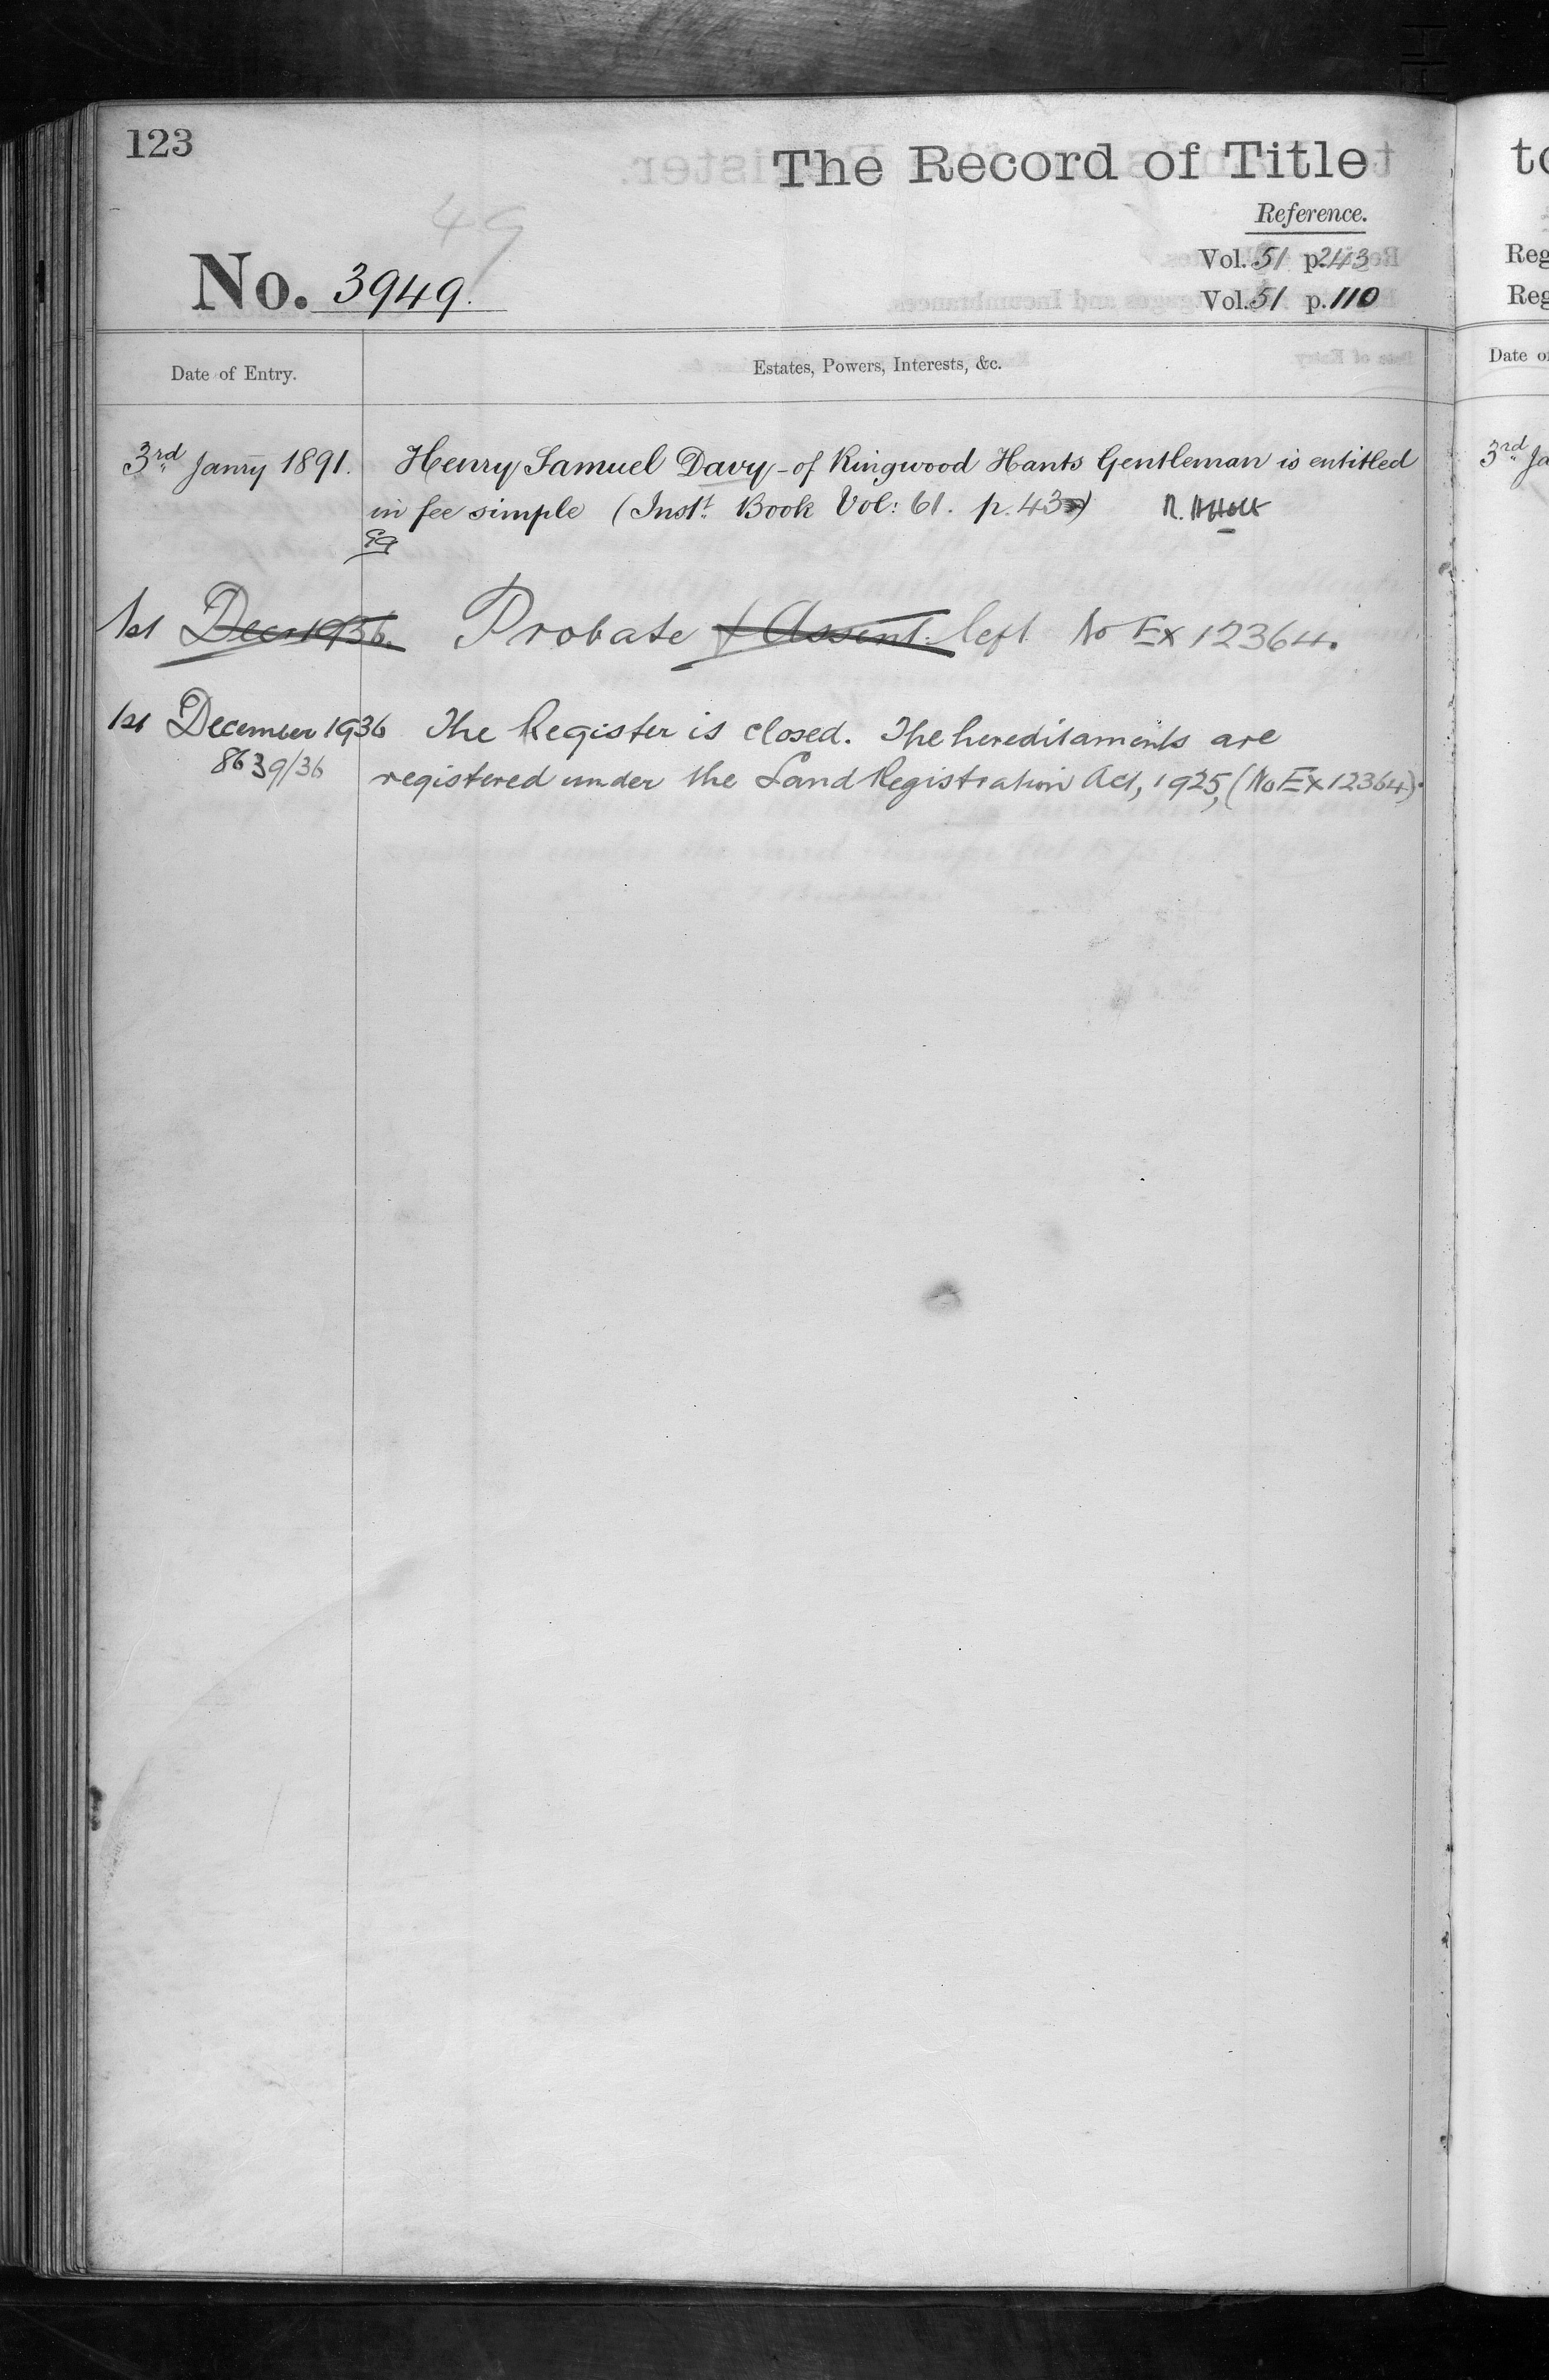 123
The Record of Title
Reference.
Vol. 51 p. 243
Vol. 51 p. 110
49
No. 3949.
Date of Entry.
Estates, Powers, Interests, &c.
3rd Janry 1891. Henry Samuel Davy - of Ringwood Hants Gentleman is entitled
in fee simple (Instt. Book Vol: 61. p. 43
1st Decr 1936. Probate & Assent. left No Ex 12364.
1st December 1936 The Register is closed. The hereditaments are
8639/36 registered under the Land Registration Act, 1925, (No Ex 12364).
to
Reg
Reg
Date of
3rd Ja